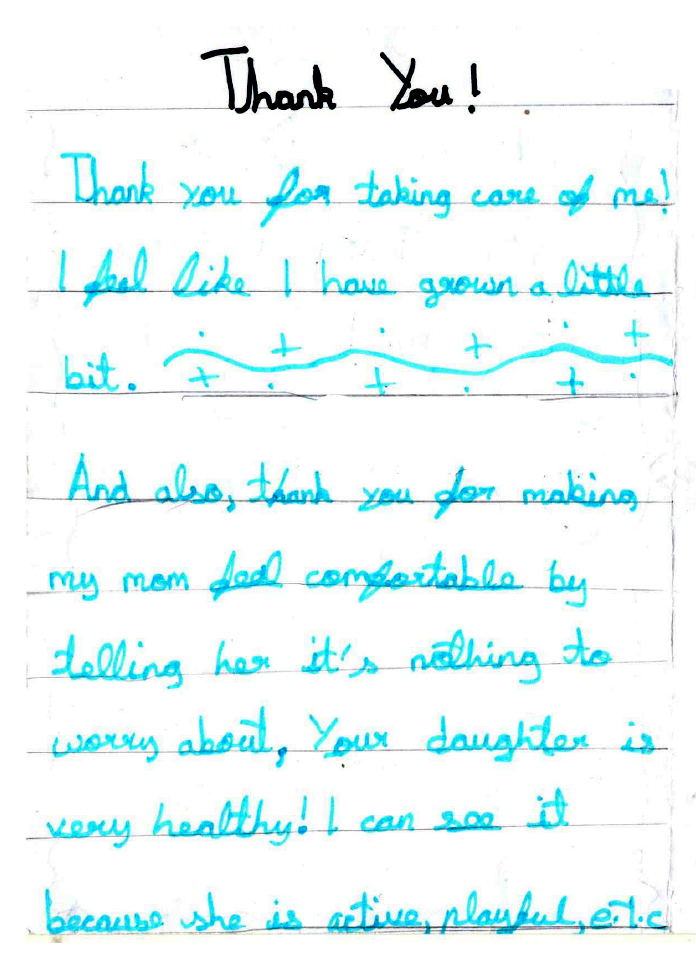 Thank You!
Thank you for taking care of me!
I feel like I have grown a little
bit.
And also, thank you for making
my mom feel comfortable by
telling her it's nothing to
worry about, Your daughter is
very healthy! I can see it
because she is active, playful, e.t.c